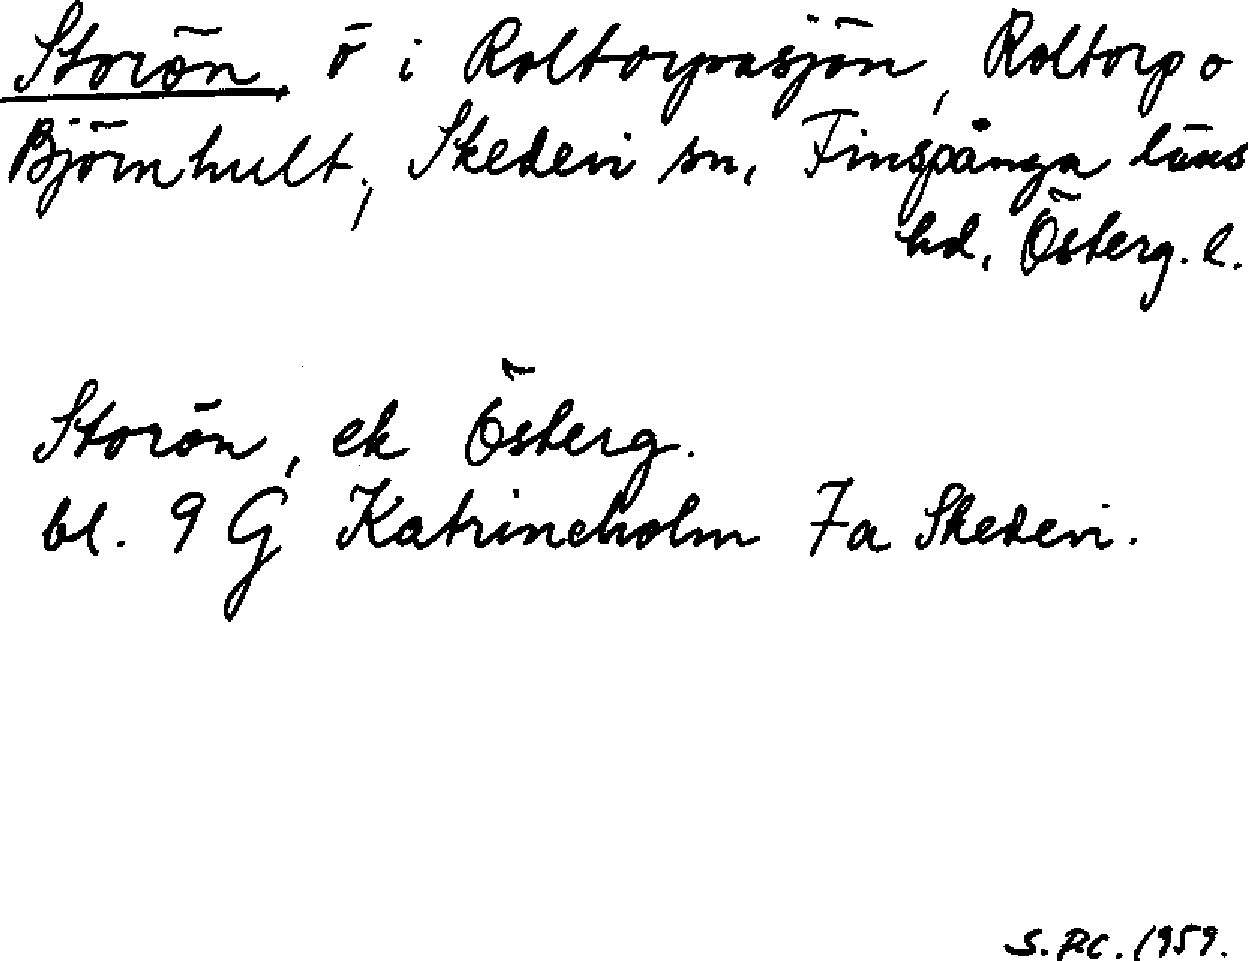 Storön, ö i Roltorpasjön, Roltorp o
Björnhult, Skedevi sn, Finspånga läns
hd, Österg. l.
Storön, ek Österg.
bl. 9 G Katrineholm 7a Skedevi.
S. RC. 1959.